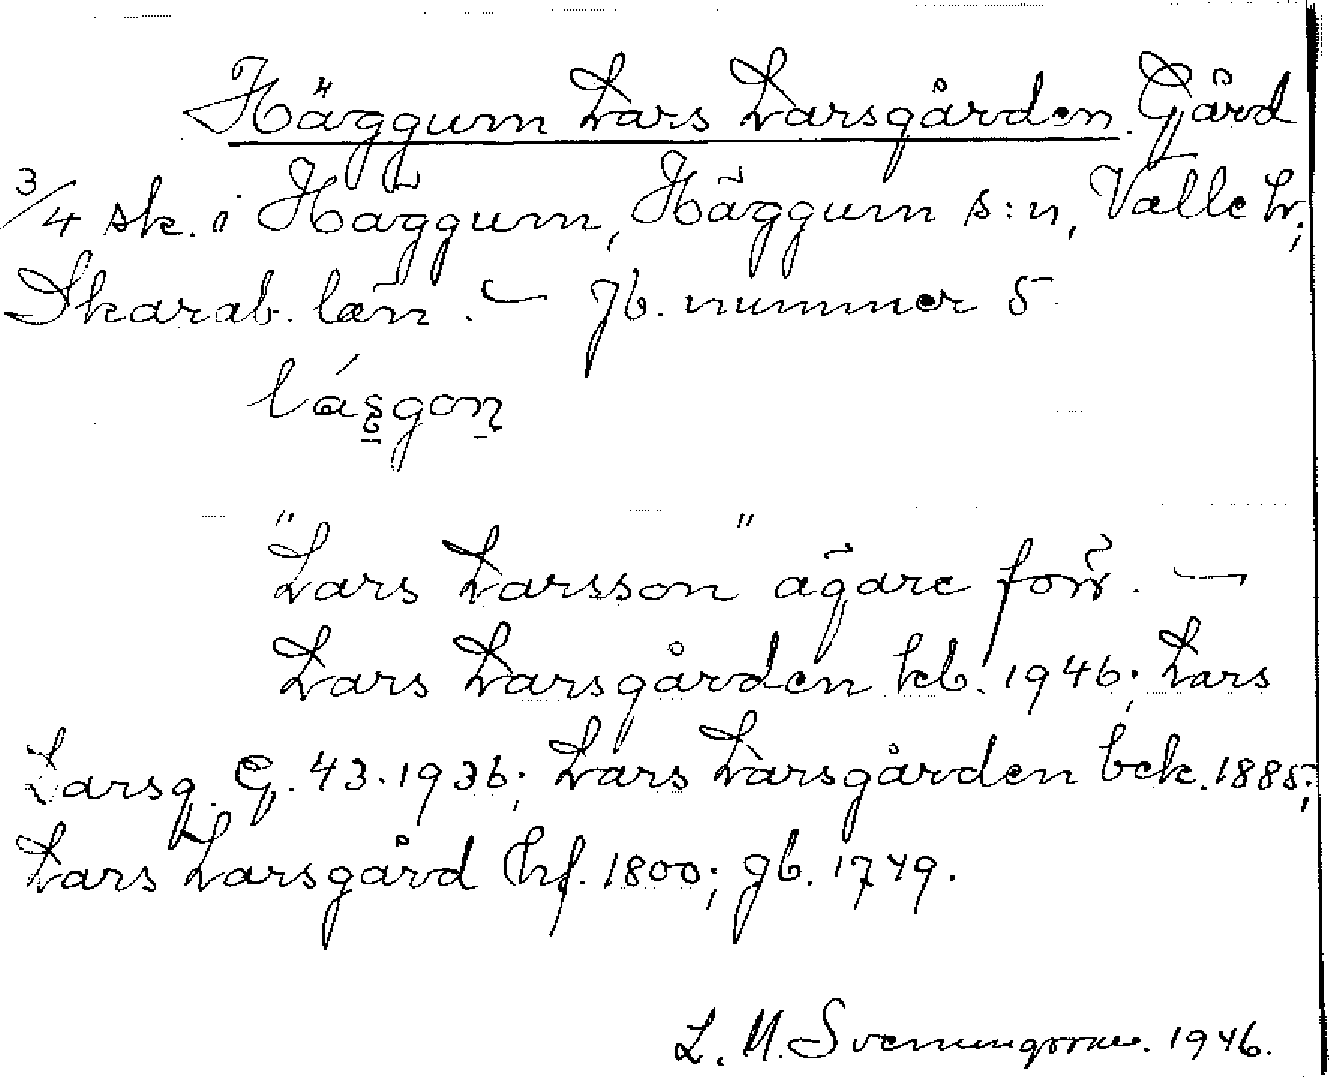 Häggum Lars Larsgården. Gård
3/4 sk. i Häggum, Häggum s:n, Valle hr;
Skarab. län. — Jb. nummer 5
lásgon
"Lars Larsson" ägare förr. —
Lars Larsgården kb. 1946; Lars
Larsg. G. 43. 1936; Lars Larsgården bek. 1885;
Lars Larsgård hf. 1800; gb. 1749.
L. M. Svenungsson. 1946.